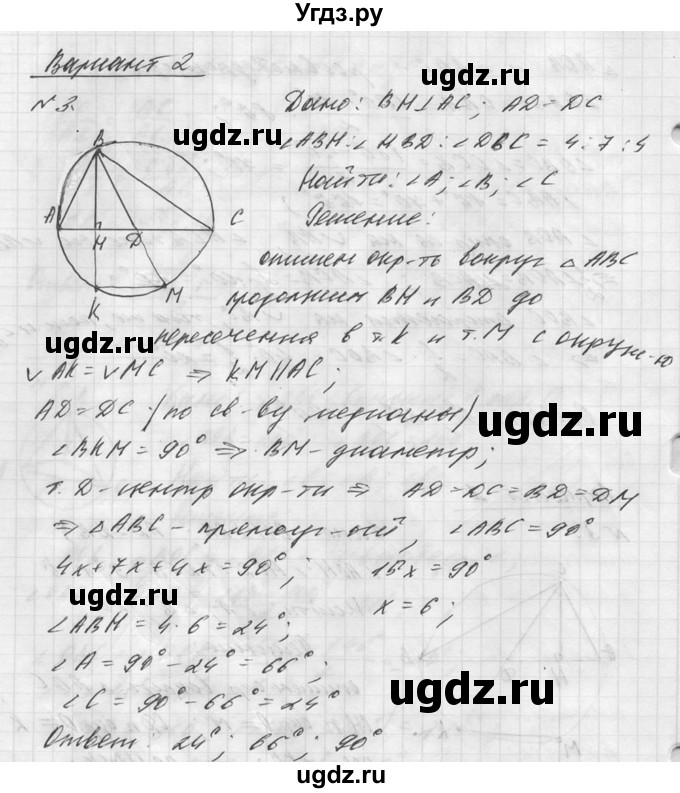 Угдз.ру
Вариант 2
№3.
Дано: BH⊥AC; AD=DC
ugdz.ru
∠ABH:∠HBD:∠DBC = 4:7:4
Найти: ∠A; ∠B; ∠C
Решение:
B
A
H
D
C
K
M
ugdz.ru
опишем окр-ть вокруг △ABC
продолжим BH и BD до
пересечения в т.K и т.M с окруж-ю
ugdz.ru
∨AK=∨MC ⇒ KM||AC;
AD=DC (по св-ву медианы)
ugdz.ru
∠BKM=90° ⇒ BM-диаметр;
т. D-центр окр-ти ⇒ AD=DC=BD=DM
⇒ △ABC-прямоуг-ый, ∠ABC=90°
4x+7x+4x=90°; 15x=90°
ugdz.ru
x=6;
∠ABH=4·6=24°;
∠A=90°-24°=66°;
ugdz.ru
∠C=90°-66°=24°
Ответ: 24°; 66°; 90°
ugdz.ru